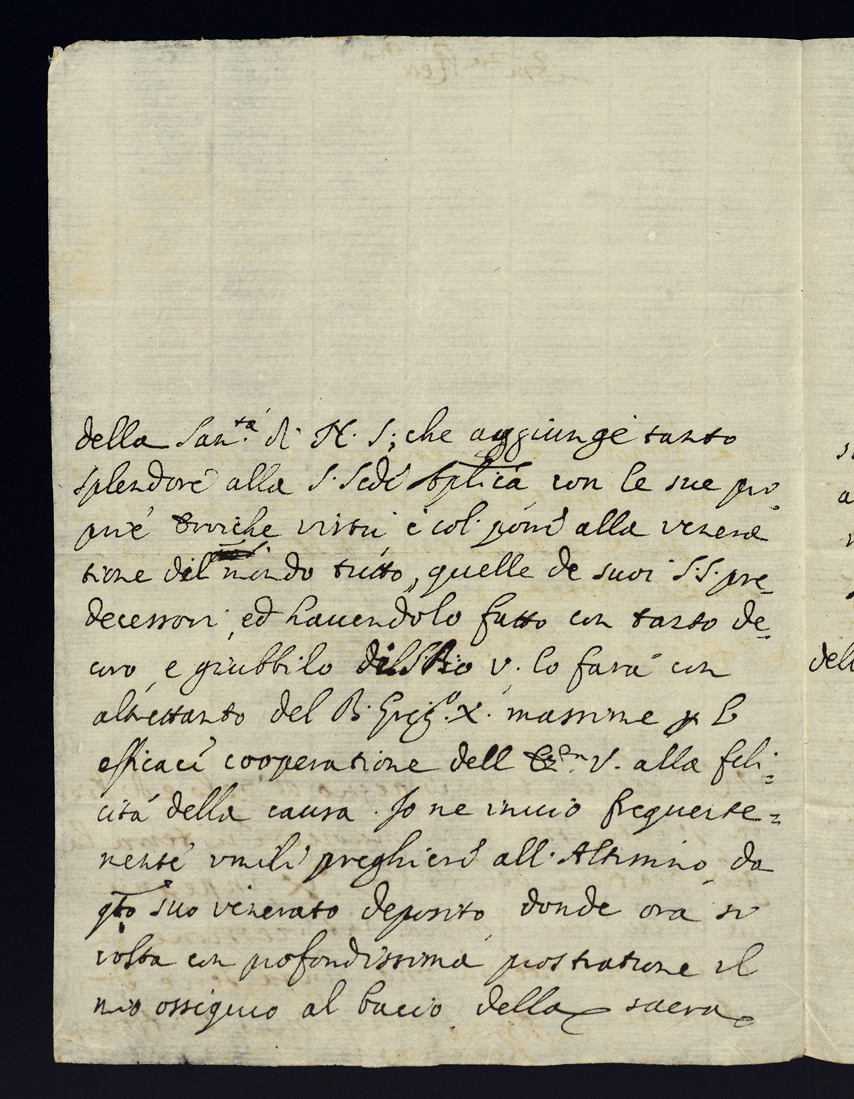 della San.tà di N. S; che aggiunge tanto
splendore alla S. Sede Aplica con le sue pro
prie eroiche virtù e col porre alla venera
tione del mondo tutto, quelle de suoi S.S. pre=
decessori, ed havendolo fatto con tanto de=
coro, e giubbilo di S. Pio V. lo farà con
altrettanto del B. Greg.o X. massime p la
efficace cooperatione dell' V. alla feli=
cità della causa. Io ne invio frequente=
mente umili preghiere all' Altissimo, da
qto suo venerato deposito, donde ora si
volta con profondissima prostratione il
mio ossequio al bacio della sacra